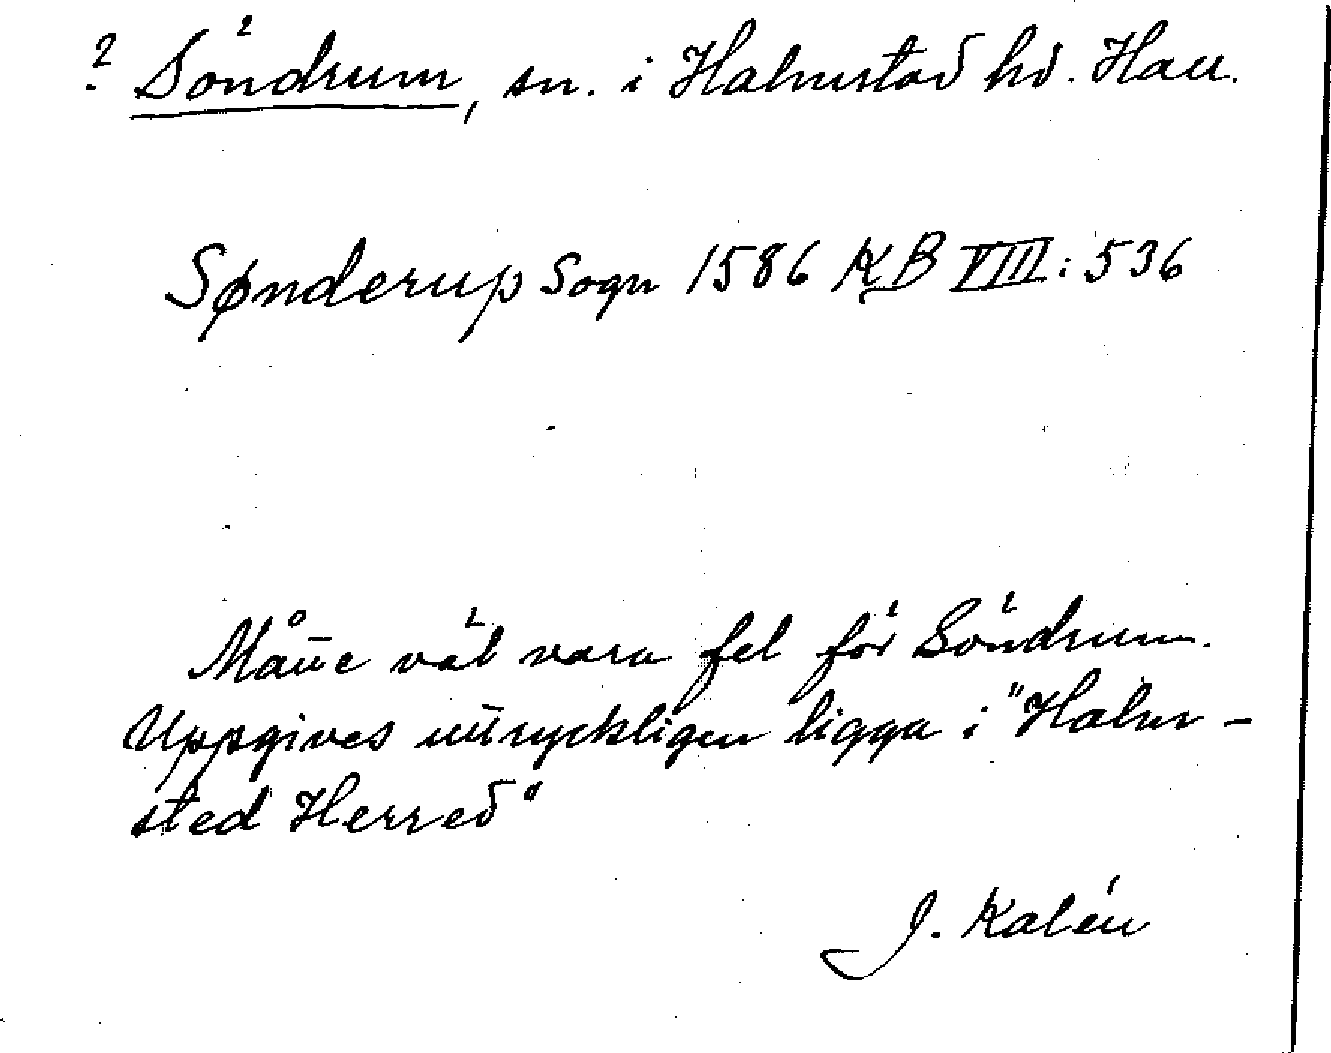 ? Söndrum, sn. i Halmstad hd. Hall.
Sønderup Sogn 1586 KB VIII: 536
Måtte väl vara fel för Söndrum.
Uppgives uttryckligen ligga i "Halm-
sted Herred"
J. Kalén